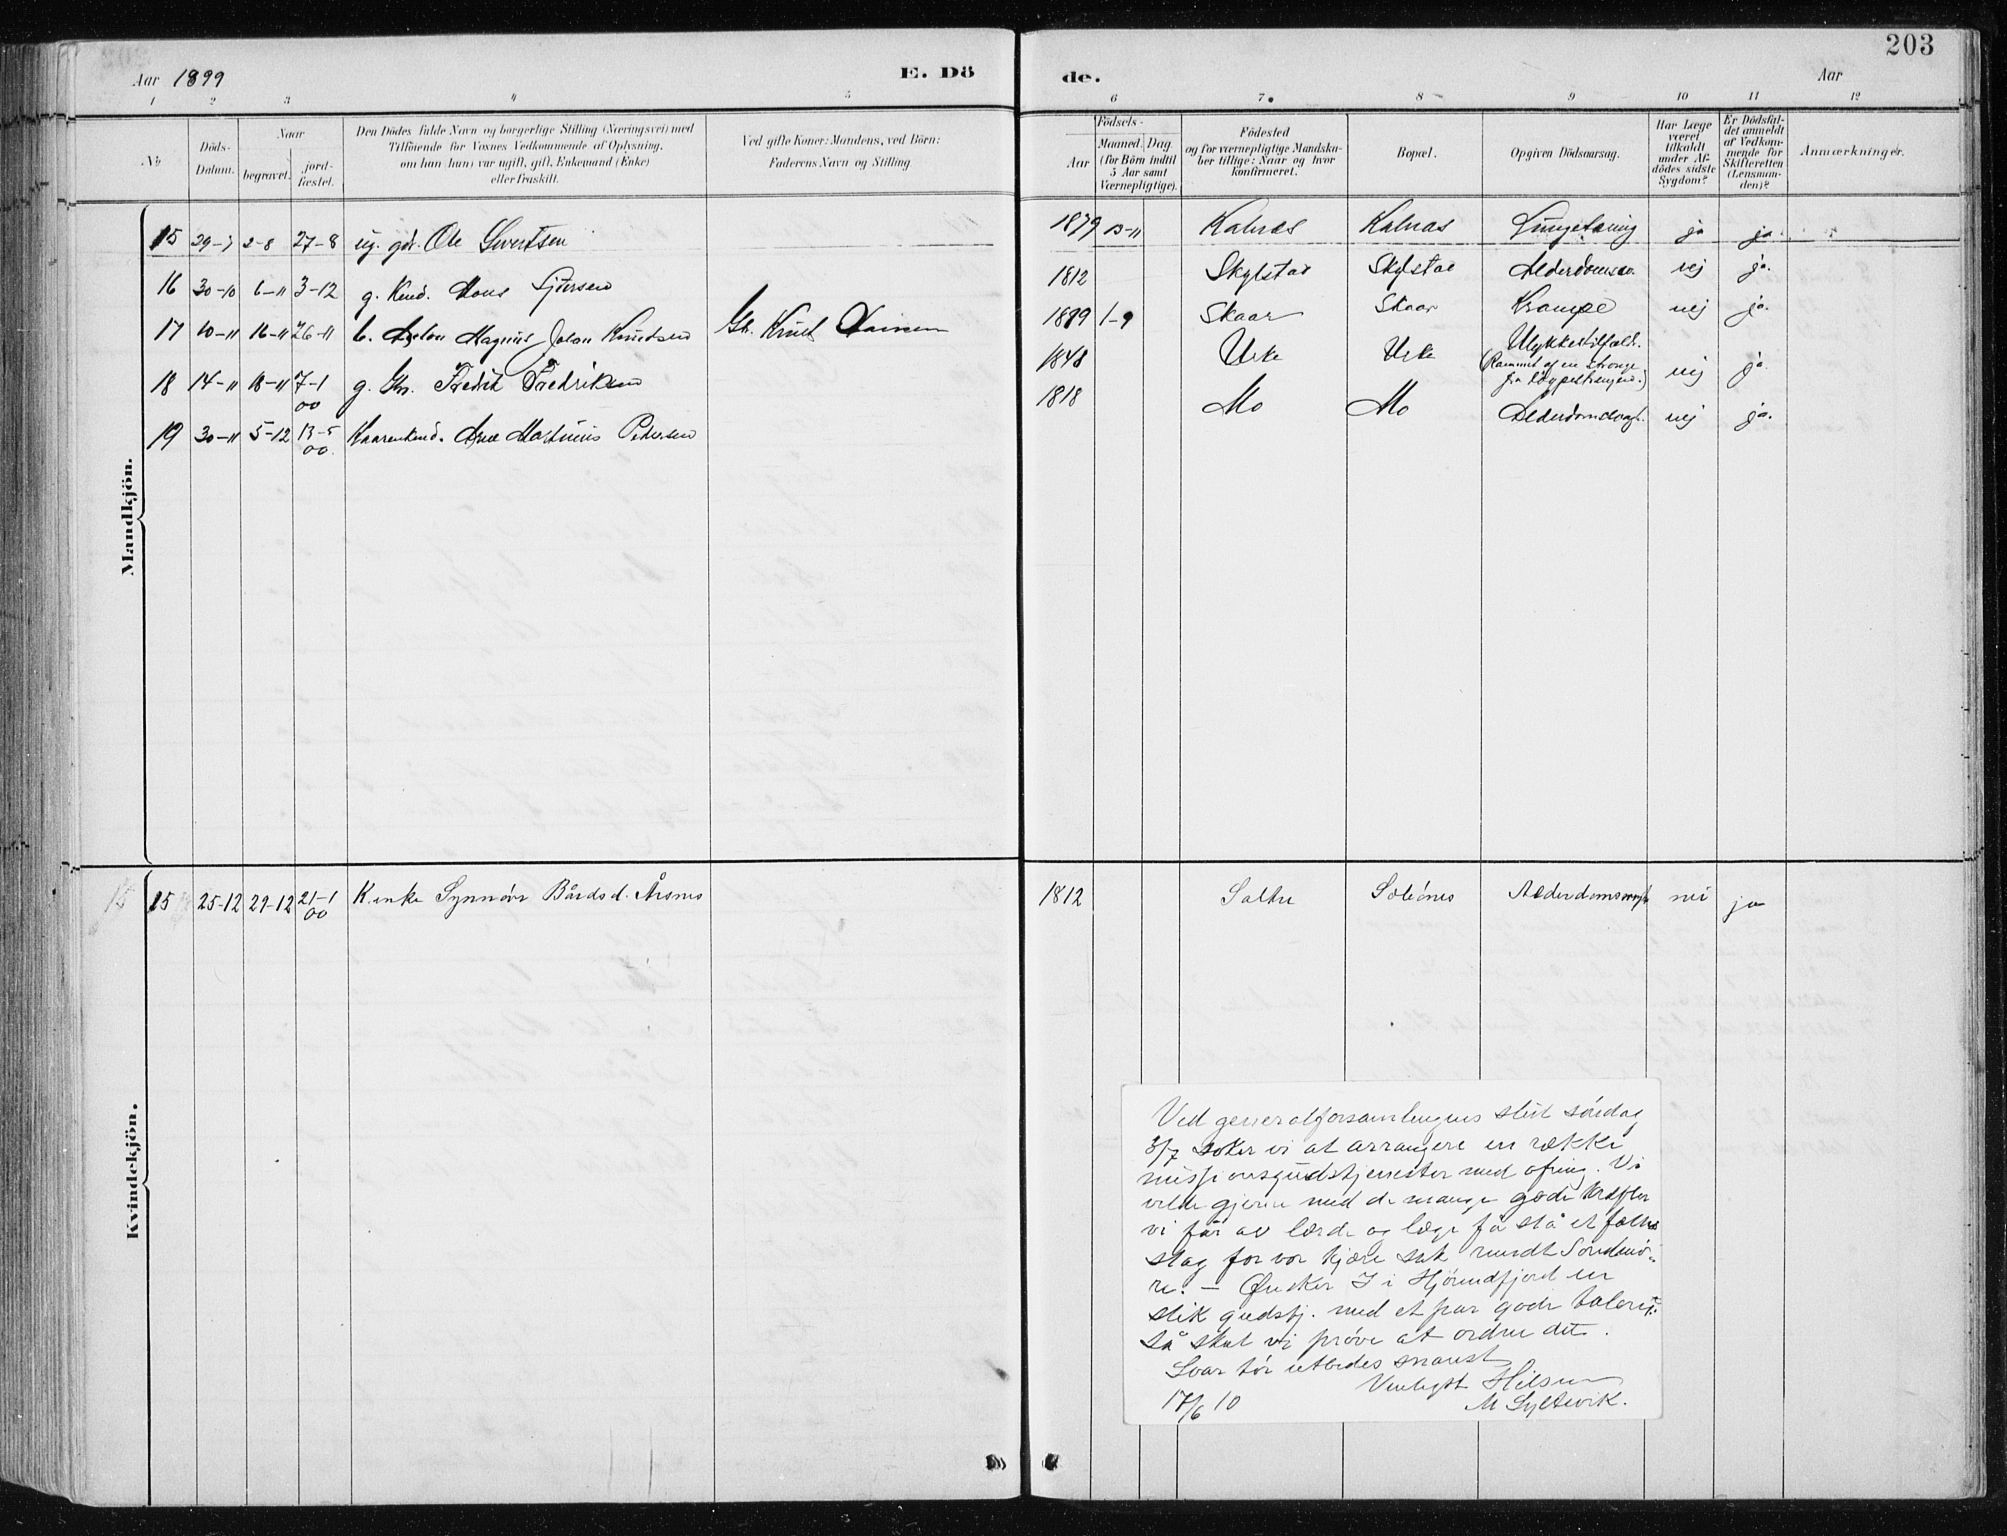 203
Aar 1899
E. Dö
de.
Aar
1 2 3 4 5
6 7 8 9 10 11 12
No
Döds-
Datum.
Naar
begravet.
jord-
fæstet.
Den Dödes fulde Navn og borgerlige Stilling (Næringsvei) med
Tilföiende for Voxnes Vedkommende af Oplysning,
om han (hun) var ugift, gift, Enkemand (Enke)
eller fraskilt.
Ved gifte Koner: Mandens, ved Börn:
Faderens Navn og Stilling.
Födsels-
Aar
Maaned. Dag.
(for Börn indtil
5 Aar samt
Værnepligtige).
Födested
og for værnepligtige Mandska-
ber tillige: Naar og hvor
konfirmeret.
Bopæl.
Opgiven Dödsaarsag.
Har Læge
været
tilkaldt
under Af-
dödes sidste
Sygdom?
Er Dödsfal-
det anmeldt
af Vedkom-
mende for
Skifteretten
(Lensman-
den)?
Anmærkninger.
Mandkjön.
15 29-7 2-8 27-8 ug. gdr. Ole Sivertsen 1879 Kalnæs Kalnæs Lungetæring ja ja
16 30-10 6-11 3-12 g. Kmd. Mons 1812 Skylstad Skylstad nej ja.
17 10-11 16-11 26-11 b. Magnus Johan Knudsen Gb. Knut 1899 1-9 Skaar Skaar Krampe nej ja.
18 14-11 18-11 7-1 00 g. Gbr. Fredrik Fredriksen 1848 Urke Urke Ulykkestilfæld.
(Rammet af en
fra nej ja.
19 30-11 5-12 13-5 00 Kaarenkmd. Martinus Petersen 1818 Mo Mo Alderdomssvagh. nej ja.
Kvindekjön.
15 15 25-12 29-12 21-1 00 K.enke Synnöve Bårdsd. Årsnes 1812 Sæbönes Alderdomssvagh nei ja
Ved generalforsamlingens slut söndag
3/7 söker vi at arrangere en række
missionsgudstjenester med ofring. Vi
vilde gjerne med de mange gode kræfter
vi får av lærde og læge få slå et fælles
slag for vor kjære sak rundt Söndmö-
re. — Ønsker I i Hjörundfjord en
slik gudstj. med et par gode talere,
så skal vi pröve at ordne det.
Svar tör utbedes snarest
Venligst Hilsen
17/6 10 M Syltevik.